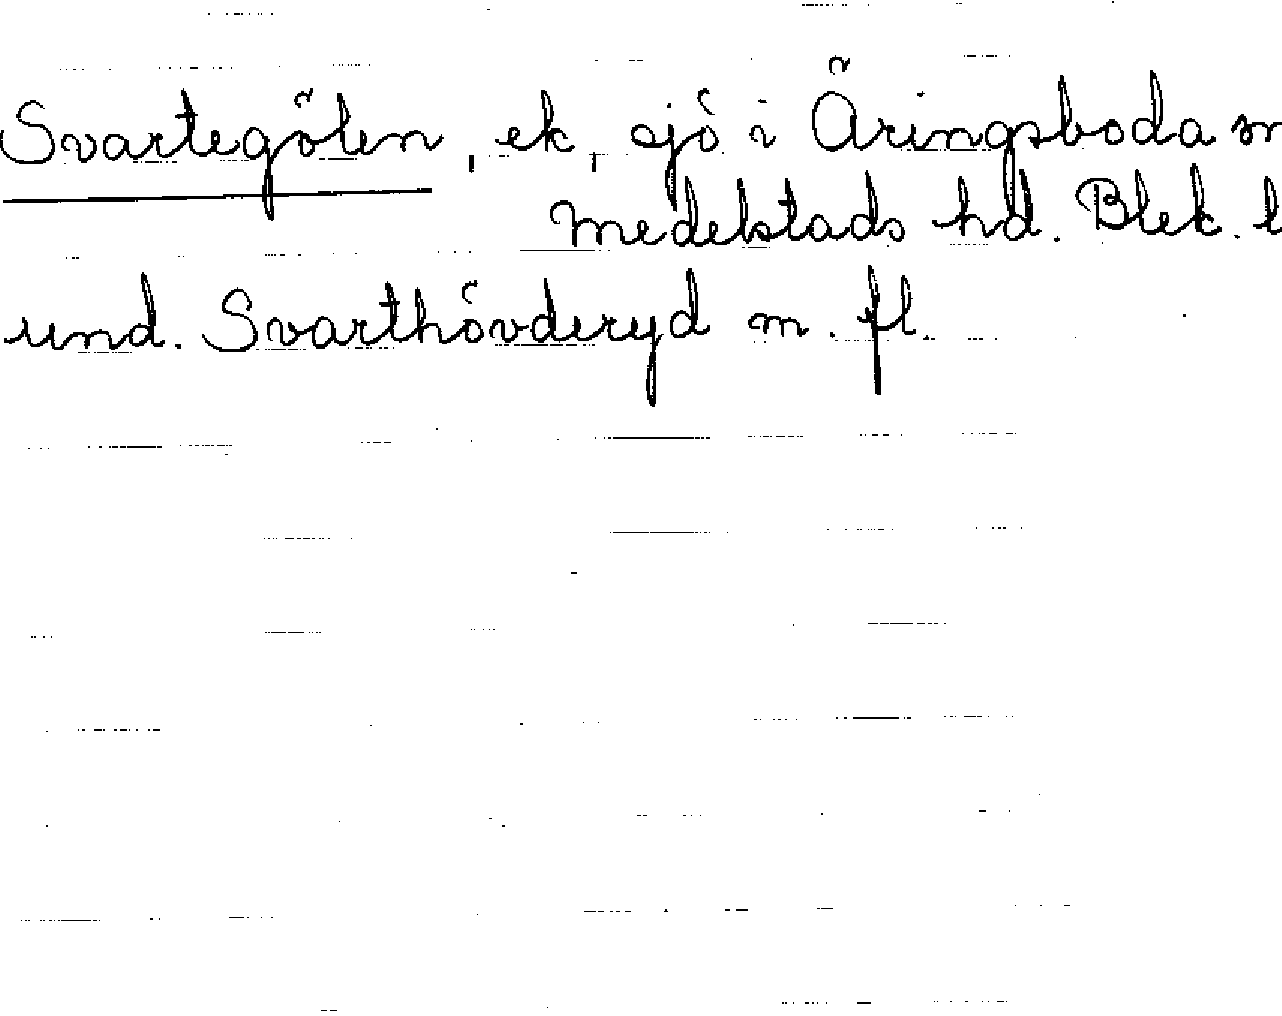 Svartegölen, ek, sjö i Äringsboda
Medelstads hd. Blek.
und. Svarthövderyd m. fl.